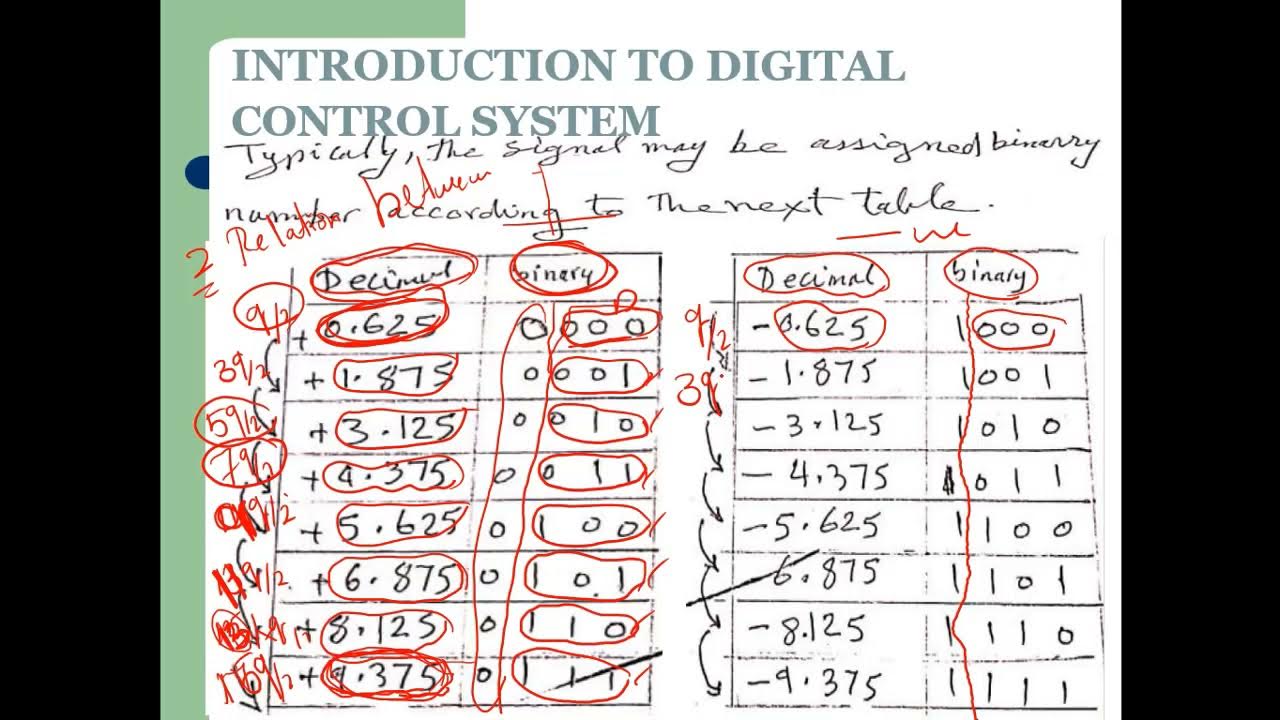 INTRODUCTION TO DIGITAL
CONTROL SYSTEM
Typically, the signal may be assigned binarry
number according to The next table.
2 Relation between
Decimal binary Decimal binary
q/2 + 0.625 0 000 q/2 - 0.625 1 000
3q/2 + 1.875 0 001 3q - 1.875 1 001
5q/2 + 3.125 0 010 - 3.125 1 010
7q/2 + 4.375 0 011 - 4.375 1 011
+ 5.625 0 100 - 5.625 1 100
11q/2 + 6.875 0 101 - 6.875 1 101
+ 8.125 0 110 - 8.125 1 110
+ 9.375 0 111 - 9.375 1 111